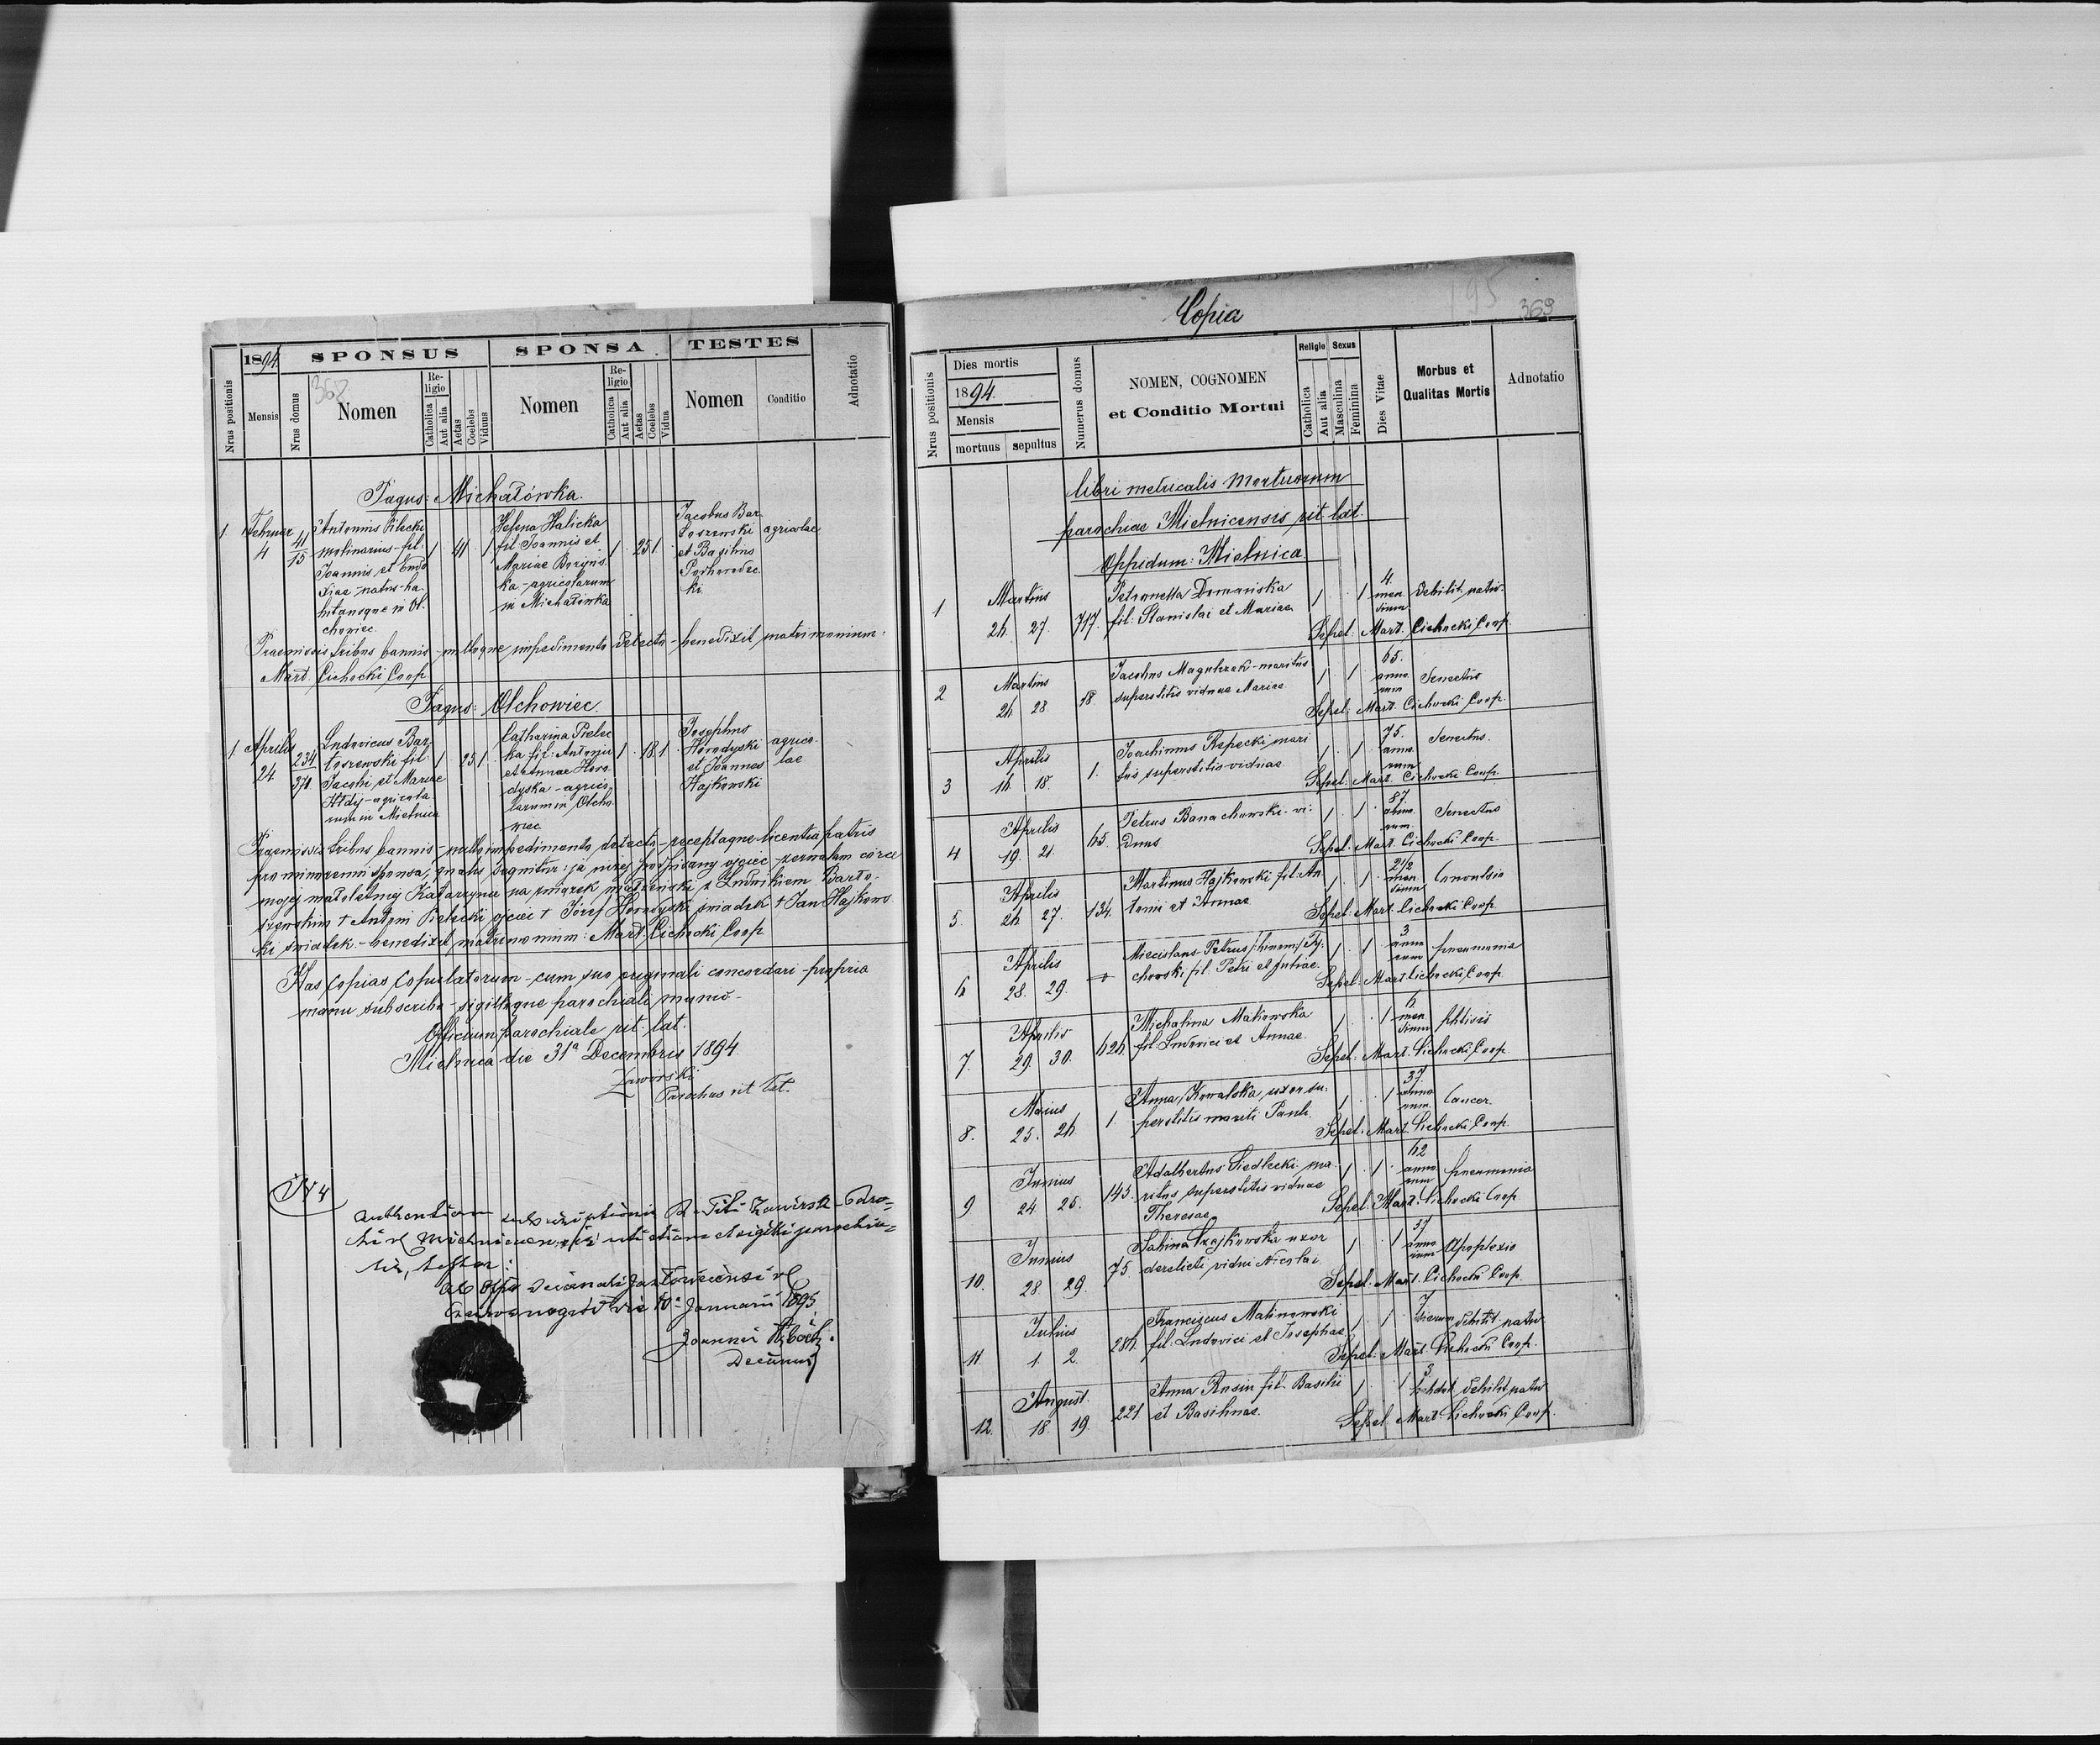 1894.
SPONSUS
SPONSA
TESTES
Nrus positionis
Mensis
Nrus domus
Nomen
Religio
Catholica
Aut alia
Aetas
Coelebs
Viduus
Nomen
Religio
Catholica
Aut alia
Aetas
Coelebs
Vidua
Nomen
Conditio
Adnotatio
368
Pagus: Michałówka.
1 Februar 4
41
15
Antonius Pilecki
molinarius - fil.
Joannis et Eudo
xiae natus - ha
bitansque in Ol.
chowiec
1 41 1
Helena Halicka
fil. Joannis et
Mariae Boryńs
ka - agricolarum
in Michałówka
1 25 1
Jacobus Bar
toszewski
et Basilius
Podhorodec
ki
agricolae
Praemissis tribus bannis - nulloque impedimento detecto - benedixit matrimonium:
Mart. Cichocki Coop
Pagus: Olchowiec.
1 Aprilis 24
234
370
Ludovicus Bar
toszewski fil
Jacobi et Mariae
agricola
rum in Mielnica
1 25 1
Catharina Pielec
ka fil. Antonii
et Annae Horo
dyska - agrico
larum in Olcho
wiec
1 18 1
Josephus
Horodyski
et Joannes
Hajkowski
agrico
lae
Praemissis tribus bannis - nullo impedimento detecto - receptaque licentia patris
pro minorenni sponsa, quatis sequitur: ja niżej podpisany ojciec - zezwalam córce
mojej małoletniej Katarzynie na związek małżeński z Ludwikiem Barto
szewskim + Antoni Pielecki ojciec + Józef Horodyski świadek + Jan Hajkows
ki świadek - benedixit matrimonium: Mart. Cichocki Coop
Has copias Copulatorum - cum suo originali concordari - propria
manu subscribo - sigilloque parochiali munio -
Officium parochiale rit. lat.
Mielnica die 31a Decembris 1894
Zawirski
Parochus rit lat.
authentiam subscriptionis R. Titi Zawirski Paro-
chi rl Mielnicensis, uti etiam et sigilli parochia-
lis, testor:
Ab Offo Decanali Jazłoviecensi rl
die 10a Januarii 1895
Joannes
Decanus
Copia
195
369
Nrus positionis
Dies mortis
1894.
Mensis
mortuus
sepultus
Numerus domus
NOMEN, COGNOMEN
et Conditio Mortui
Religio
Catholica
Aut alia
Sexus
Masculina
Feminina
Dies Vitae
Morbus et
Qualitas Mortis
Adnotatio
libri metricalis Mortuorum
parochiae Mielnicensis rit. lat.
Oppidum: Mielnica
1 Martius 26 27. 717. Petronella Domańska
fil. Stanislai et Mariae 1 1 4 mensium Debilit. natur.
Sepel: Mart. Cichocki Coop.
2 Martius 26 28 98 Jacobus - maritus
superstitis viduae Mariae 1 1 65. annorum Senectus
Sepel: Mart. Cichocki Coop.
3 Aprilis 16 18. 1. Joachimus Repecki mari
tus superstitis viduae 1 1 75. annorum Senectus.
Sepel: Mart. Cichocki Coop.
4 Aprilis 19. 21 65. Petrus Banachowski - vi:
duus 1 1 87. annorum Senectus
Sepel: Mart. Cichocki Coop.
5. Aprilis 26 27. 134. Martinus Hajkowski fil. An
tonii et Annae 1 1 2 1/2 mensium Convulsio
Sepel: Mart. Cichocki Coop.
6 Aprilis 28. 29. Miecislaus Petrus /binom/ Ty:
chowski fil. Petri et Juliae 1 1 3 annorum pneumonia
Sepel: Mart. Cichocki Coop.
7. Aprilis 29. 30. 626 Michalina Makowska
fil. Ludovici et Annae. 1 1 6 mensium phtisis
Sepel: Mart. Cichocki Coop.
8. Maius 25. 26 1. Anna Kowalska, uxor su:
perstitis mariti Pauli. 1 1 37 annorum Cancer.
Sepel: Mart. Cichocki Coop.
9 Junius 24 25. 145. Adalbertus Siedlecki ma
ritus superstitis viduae
Theresae 1 1 62 annorum pneumonia
Sepel: Mart. Cichocki Coop
10. Junius 28 29. 75. Sabina Czajkowska uxor
derelicti vidui Nicolai 1 1 57 annorum Apoplexio
Sepel: Mart. Cichocki Coop.
11. Julius 1. 2. 286. Franciscus Malinowski
fil. Ludovici et Josephae 1 1 7 dierum debilit. natur
Sepel: Mart. Cichocki Coop.
12. August. 18. 19. 221. Anna Rusin fil. Basilii
et Basilinae. 1 1 3 hebdo. debilit. natur
Sepel: Mart. Cichocki Coop.